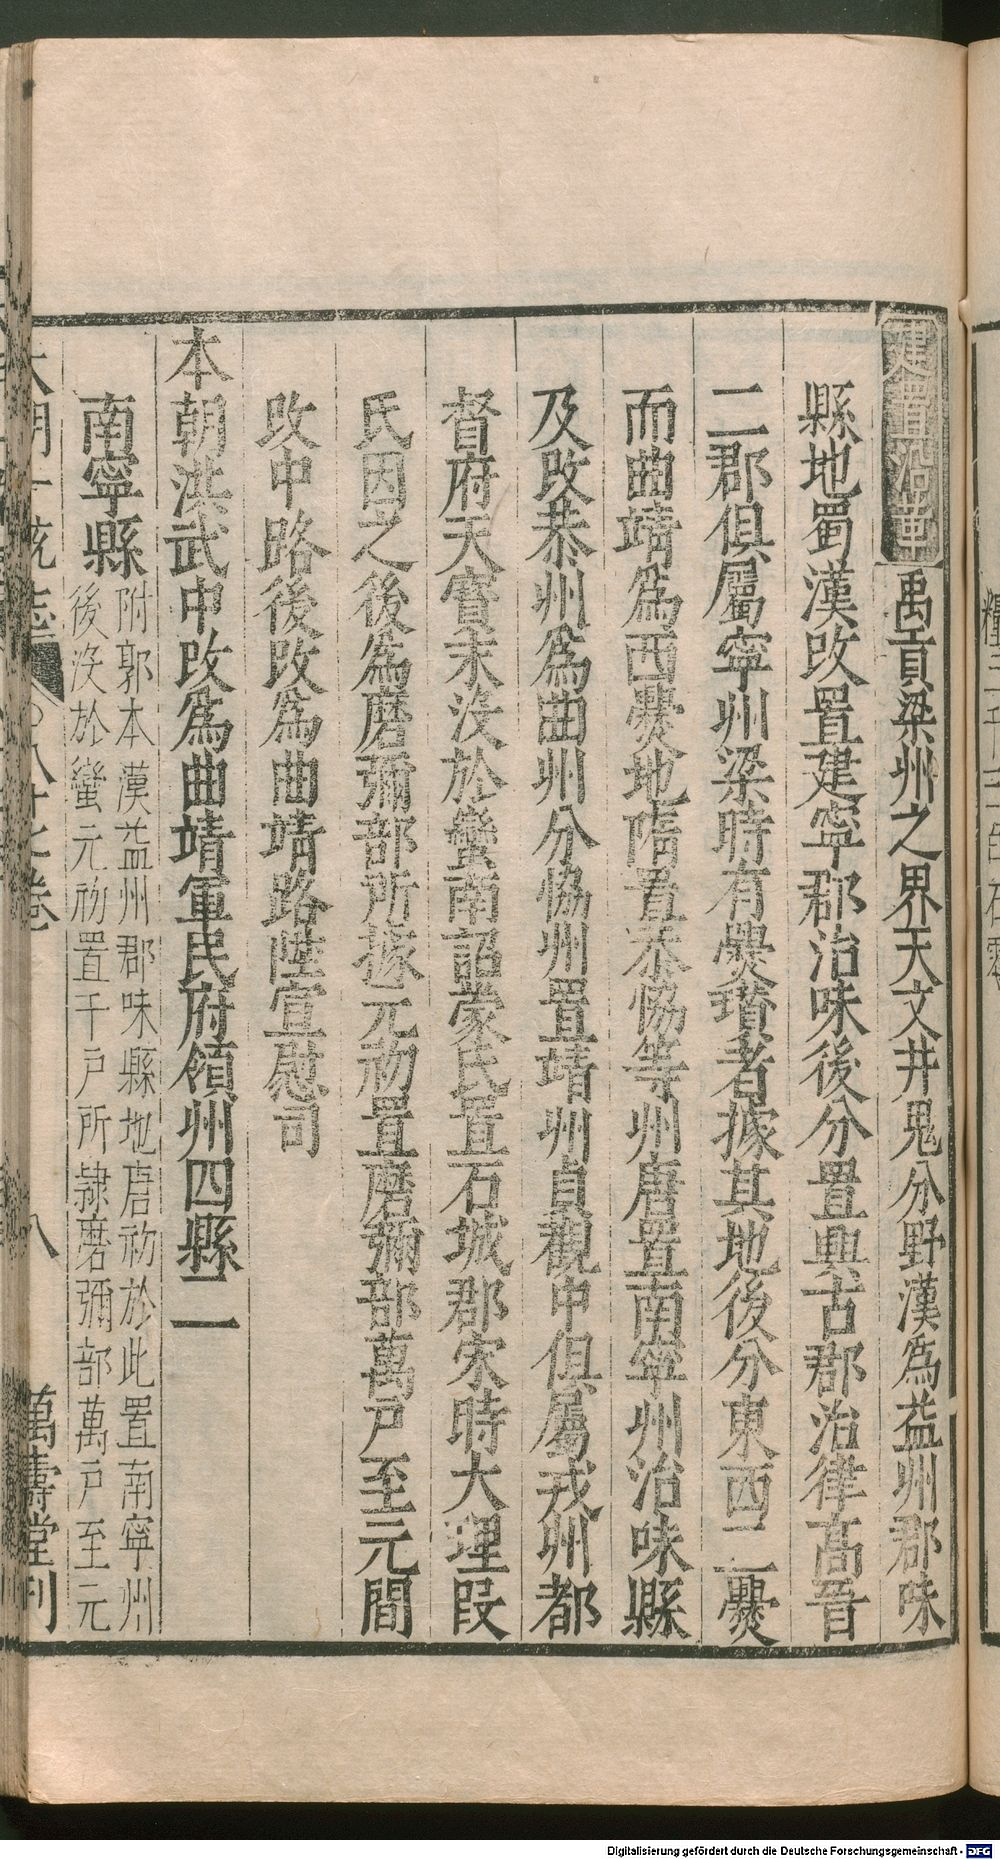 建置沿革禹貢梁州之界天文井鬼分野漢爲益州郡味
縣地蜀漢改置建寧郡治味後分置興古郡治律高晉
二郡俱屬寧州梁時有爨瓚者據其地後分東西二爨
而曲靖爲西爨地隋置恭協等州唐置南寧州治味縣
及改恭州爲曲州分協州置靖州貞觀中俱屬戎州都
督府天寶末沒於蠻南詔蒙氏置石城郡宋時大理段
氏因之後爲磨彌部所據元初置磨彌部萬戶至元間
改中路後改爲曲靖路陞宣慰司
本朝洪武中改爲曲靖軍民府領州四縣二
南寧縣附郭本漢益州郡味縣地唐初於此置南寧州
後沒於蠻元初置千戶所隷磨彌部萬戶至元
大明一統志 八十七卷 八 萬壽堂刊
Digitalisierung gefördert durch die Deutsche Forschungsgemeinschaft - DFG